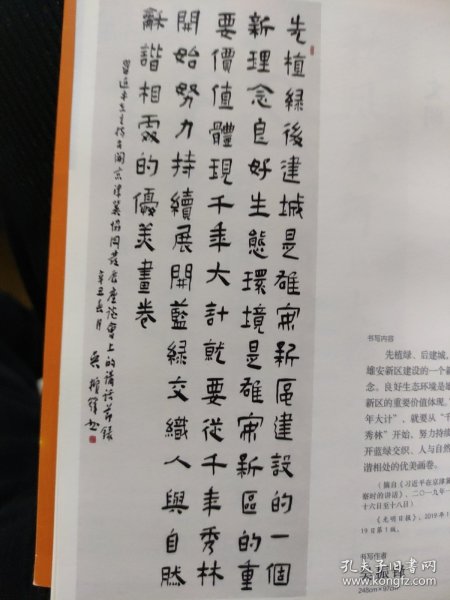 先植綠後建城是雄安新區建設的一個
新理念良好生態環境是雄安新區的重
要價值體現千年大計就要從千年秀林
開始努力持續展開藍綠交織人與自然
龢諧相處的優美畫卷
習近平主持召開京津冀協同發展座談會上的講話節錄
辛丑
书写内容
先植绿、后建城,
雄安新区建设的一个新
念。良好生态环境是雄
新区的重要价值体现。“
年大计”,就要从“千
秀林”开始,努力持续
开蓝绿交织、人与自然
谐相处的优美画卷。
(摘自《习近平在京津冀
察时的讲话》,二〇一九年一
十六日至十八日)
《光明日报》,2019年1
19日第1版。
书写作者
248cm×97cm
孔夫子旧书网
kongfz.com